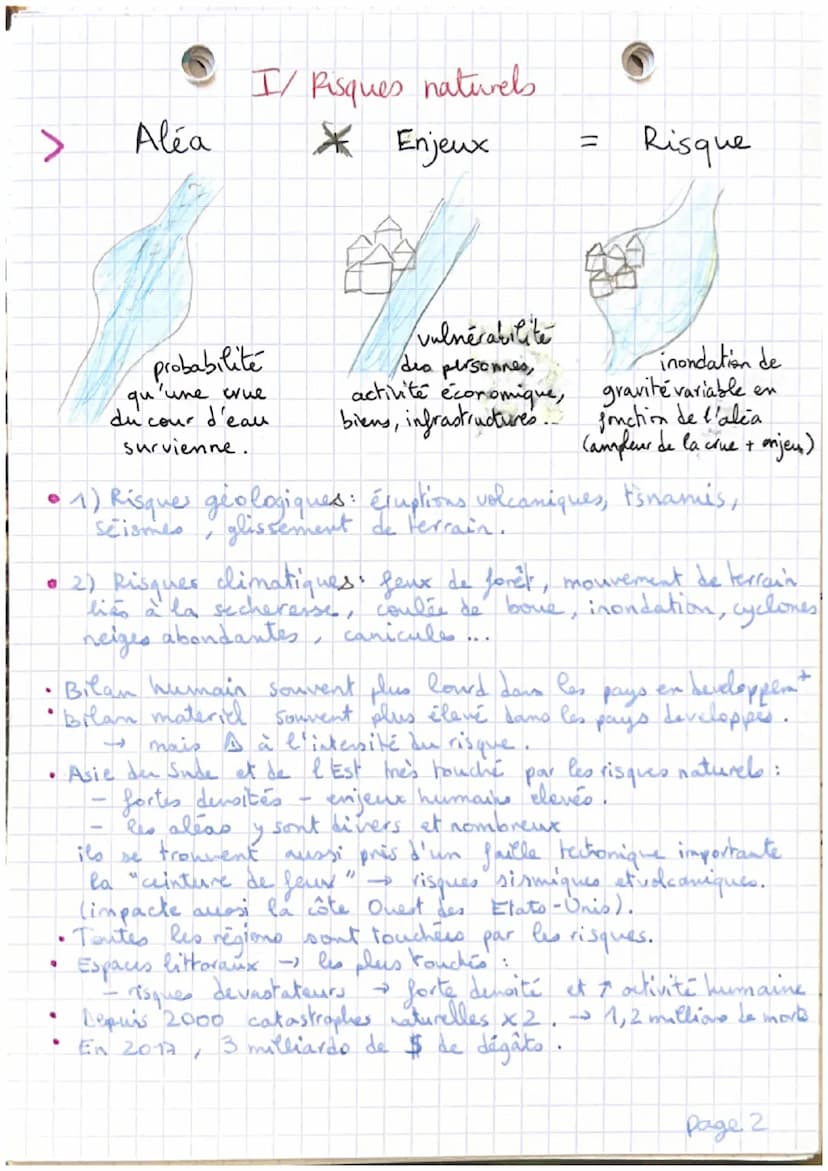 I/ Risques naturels
> Aléa * Enjeux = Risque
probabilité
qu'une crue
du cour d'eau
survienne.
vulnérabilité
des personnes,
activité économique,
biens, infrastructures...
inondation de
gravité variable en
fonction de l'aléa
(ampleur de la crue + enjeu)
• 1) Risques géologiques : éruptions volcaniques, tsnamis,
séismes, glissement de terrain.
• 2) Risques climatiques : feux de forêt, mouvement de terrain
liés à la secheresse, coulée de boue, inondation, cyclones
neiges abondantes, canicules ...
• Bilan humain souvent plus lourd dans les pays en developpemt
• bilam materiel souvent plus élevé dans les pays developpés.
→ mais ⚠ à l'intensité du risque.
• Asie du Sude et de l'Est très touché par les risques naturels :
- fortes densités - enjeux humains elevés.
- les aléas y sont divers et nombreux
ils se trouvent aussi près d'un faille techonique importante
la "ceinture de feux" → risques sismiques et volcaniques.
(impacte aussi la côte Ouest des Etats-Unis).
• Toutes les régions sont touchées par les risques.
• Espaces littoraux → les plus touchés :
- risques devastateurs → forte densité et ↑ activité humaine
• Depuis 2000 catastrophes naturelles x2. → 1,2 millions de morts
• En 2017, 3 milliards de $ de dégâts.
page 2